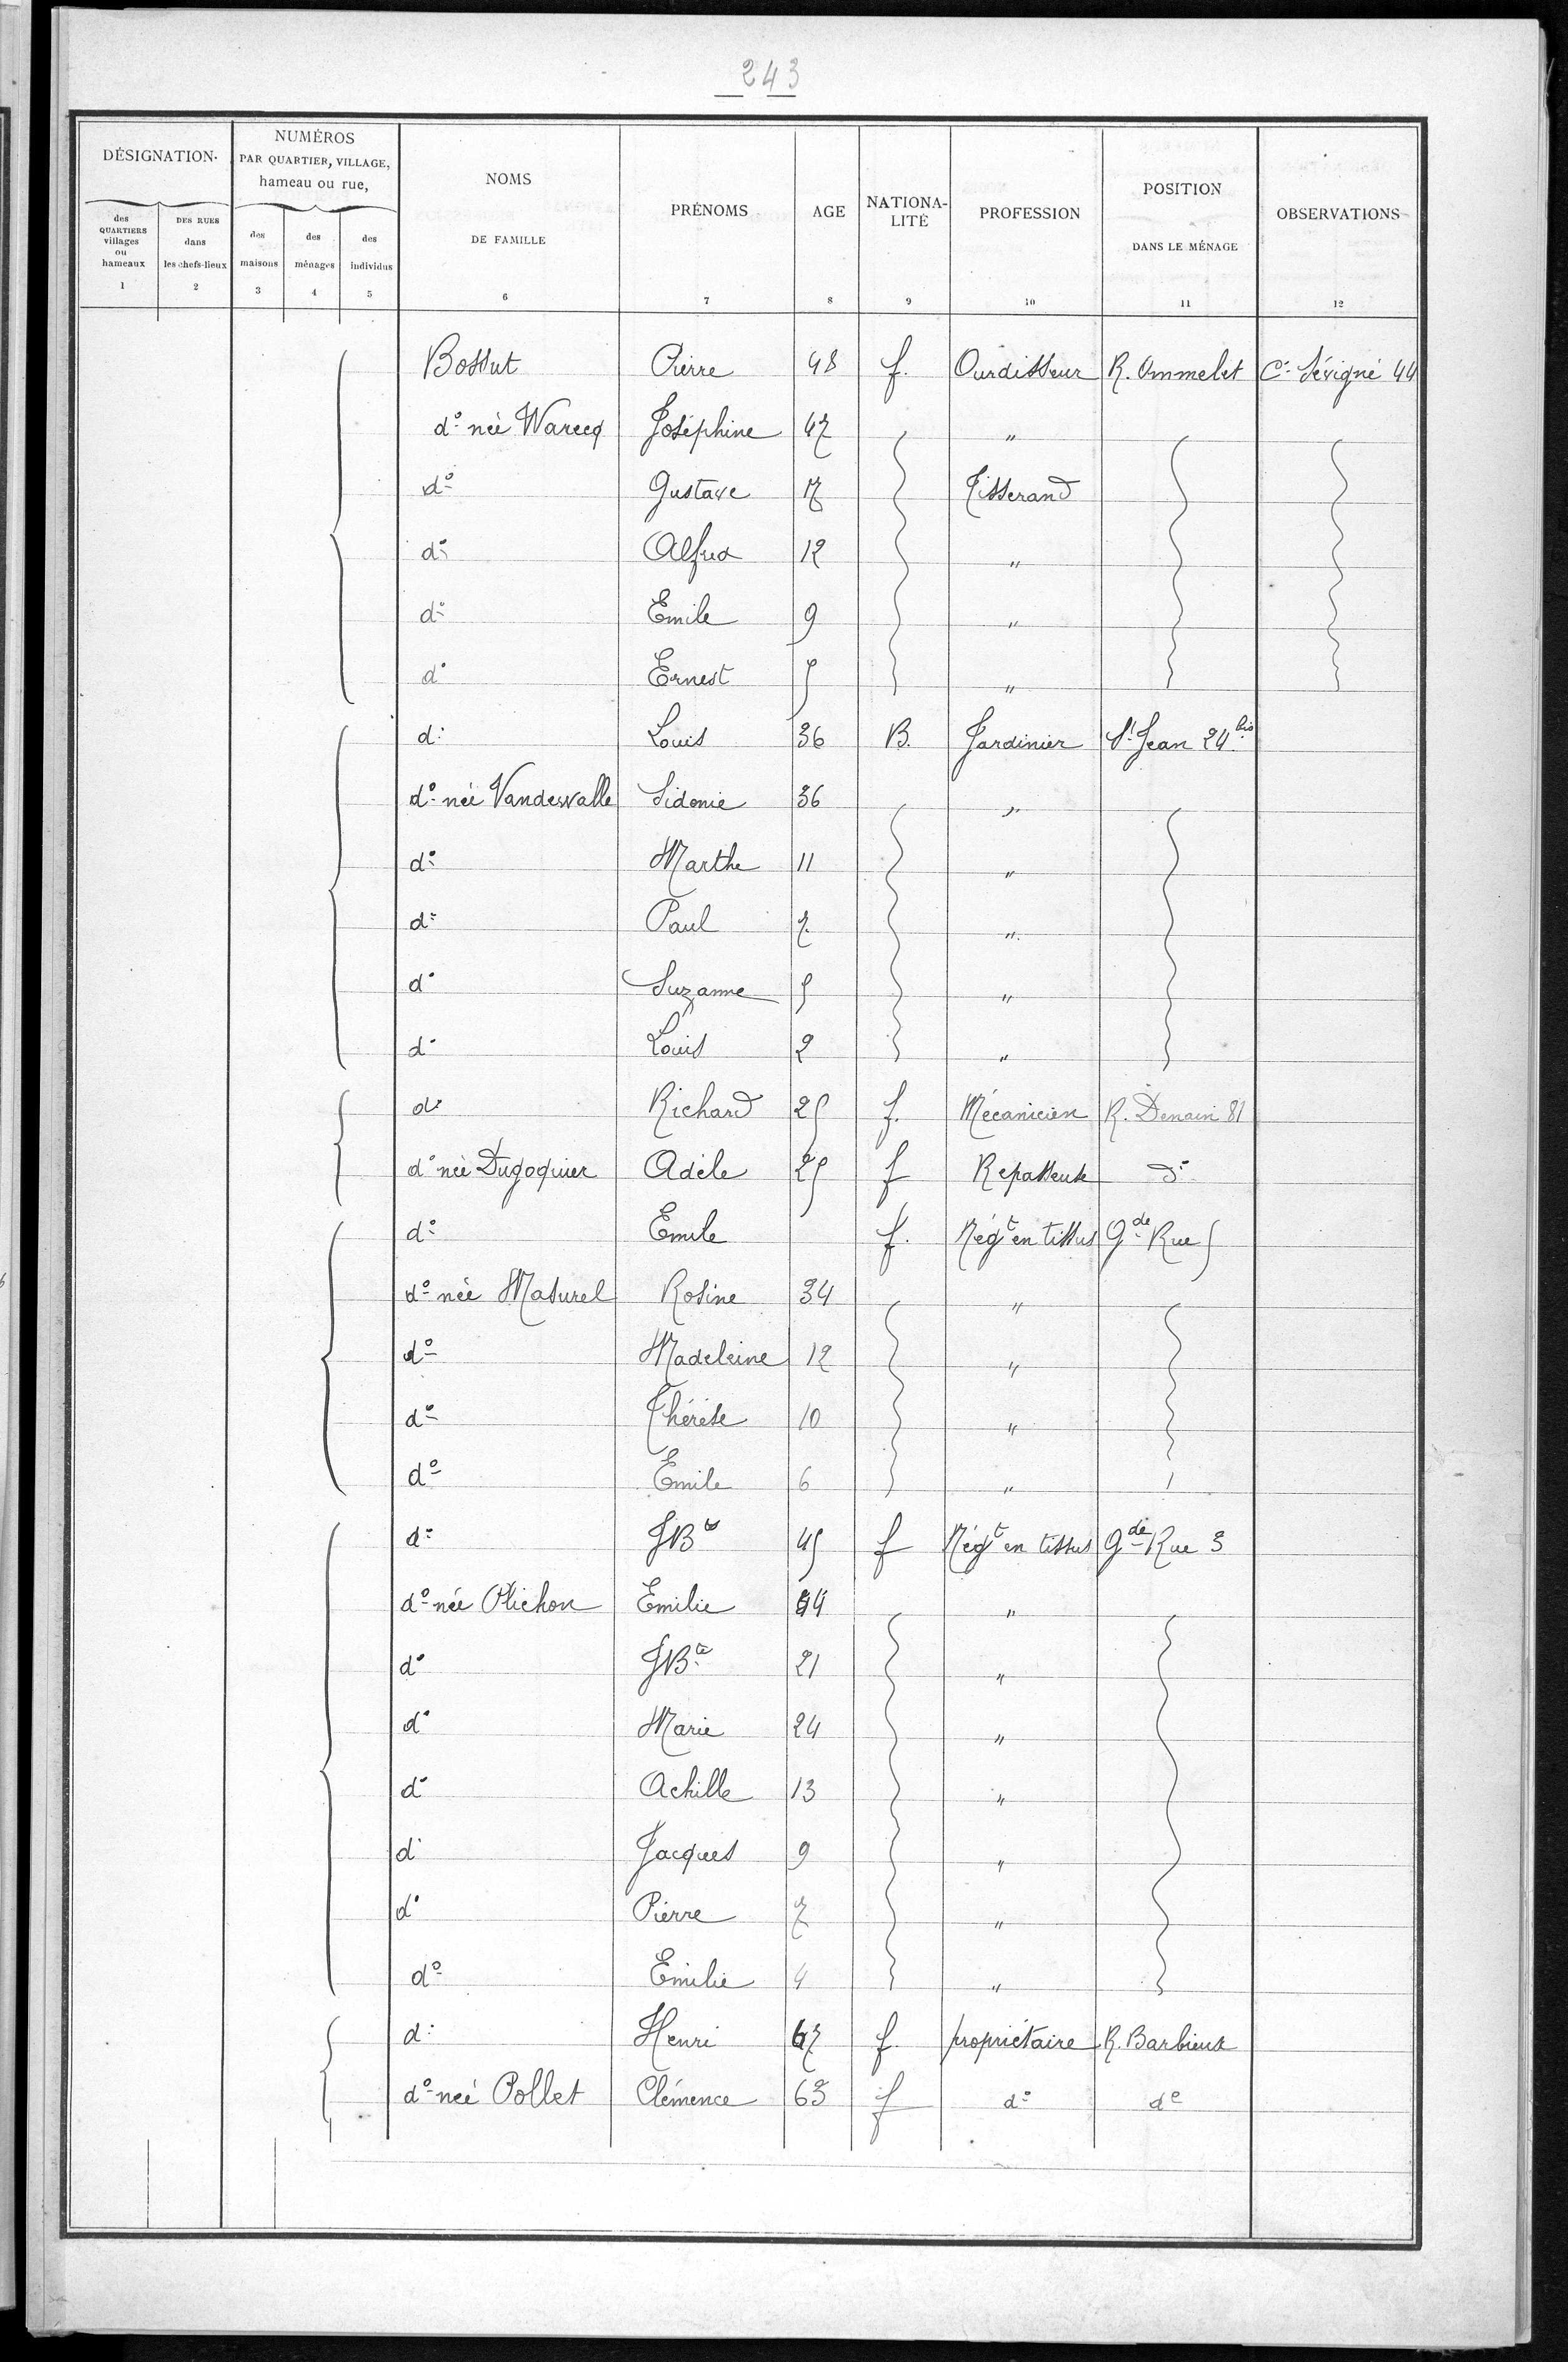 243
DÉSIGNATION.
NUMÉROS
PAR QUARTIER, VILLAGE,
hameau ou rue,
NOMS
DE FAMILLE
PRÉNOMS
AGE
NATIONA-
LITÉ
PROFESSION
POSITION
DANS LE MÉNAGE
OBSERVATIONS
des
QUARTIERS
villages
ou
hameaux
DES RUES
dans
les chefs-lieux
des
maisons
des
ménages
des
individus
1 2 3 4 5 6 7 8 9 10 11 12
Bossut Pierre 48 f. Ourdisseur R. Ommelet Cr Sévigné 44
do née Warecq Joséphine 47 "
do Gustave 17 Tisserand
do Alfred 12 "
do Emile 9 "
do Ernest 5 "
do Louis 36 B. Jardinier St Jean 24 bis
do née Vandewalle Sidonie 36 "
do Marthe 11 "
do Paul 7 "
do Suzanne 5 "
do Louis 2 "
do Richard 25 f. Mécanicien R. Denain 81
do née Dugoquier Adèle 25 f Repasseuse do
do Emile f. Négt en tissus Gde Rue 5
do née Masurel Rosine 34 "
do Madeleine 12 "
do Thérèse 10 "
do Emile 6 "
do JBte 45 f Négt en tissus Gde Rue 3
do née Plichon Emilie 44 "
do JBte 21 "
do Marie 24 "
do Achille 13 "
do Jacques 9 "
do Pierre 7 "
do Emilie 4 "
do Henri 67 f. propriétaire R. Barbieux
do née Pollet Clémence 63 f do do